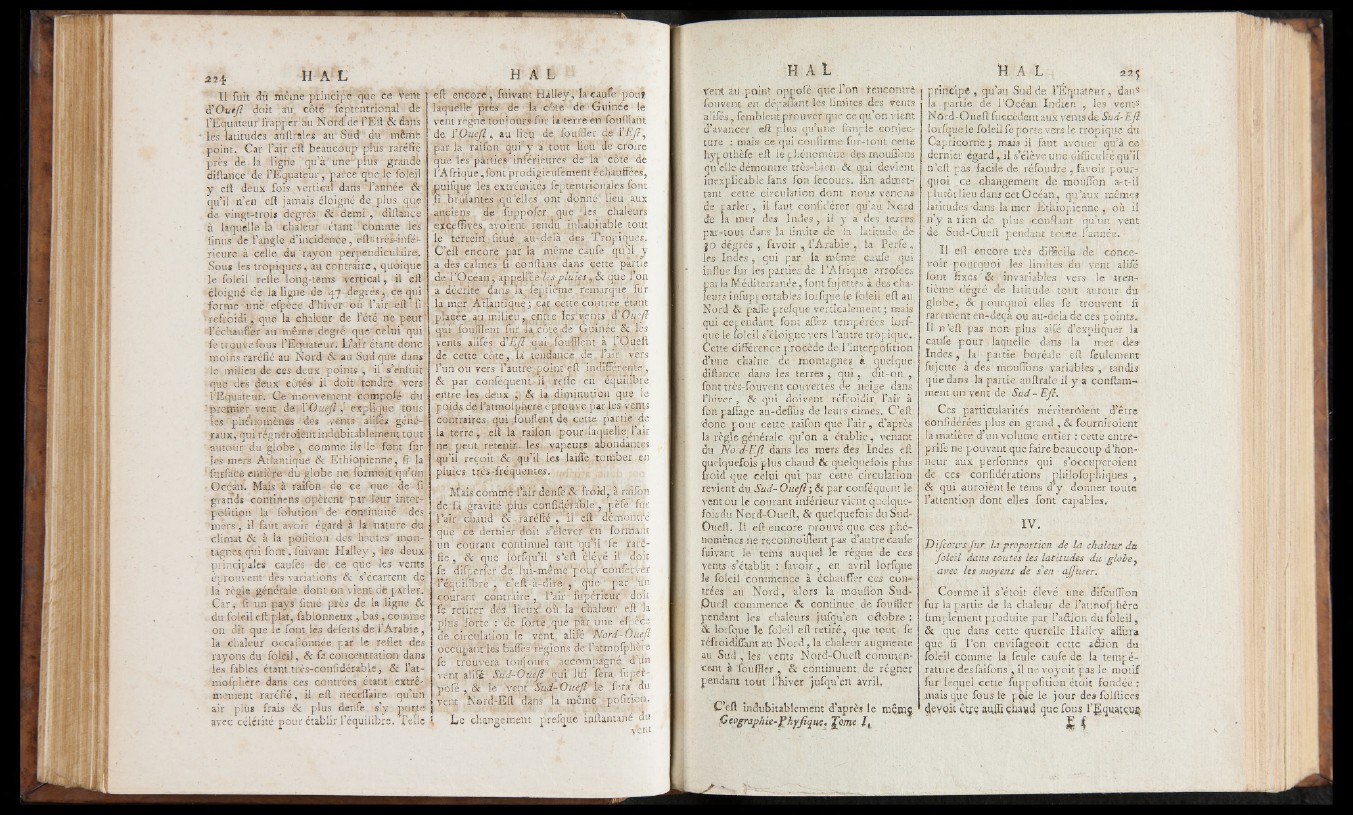 224 HAL
Il suit du même principe que ce vent
d'Ouest doit au côté septentrional de
l'Equateur frapper au Nord de l'Est & dans
les latitudes australes au Sud du même
point. Car l'air est beaucoup plus raréfié
près de la ligne qu'à une plus grande
distance de l'Equateur, parce que le soleil
y est deux fois vertical dans l'année &
qu'il n'en est jamais éloigné de plus que
de vingt-trois degrés & demi, distance
à laquelle la chaleur étant comme les
sinus de l'angle d'incidence, est très-infé-
rieure à celle du rayon perpendiculaire.
Sous les tropiques, au contraire, quoique
le soleil reste long-tems vertical, il est
éloigné de la ligne de 47 degrés, ce qui
forme une espèce d'hiver où l'air est si
refroidi, que la chaleur de l'été ne peut
l'échauffer au même degré que celui qui
se trouve sous l'Equateur. L'air étant donc
moins raréfié au Nord & au Sud que dans
le milieu de ces deux points, il s'ensuit
que des deux côtés il doit tendre vers
l'Equateur. Ce mouvement composé du
premier vent de l'Ouest, explique tous
les phénomènes des vents alisés géné-
raux, qui régneroient indubitablement tout
autour du globe, comme ils le font sur
les mers Atlantique & Ethiopienne, si la
surface entière du globe ne formoit qu'un
Océan. Mais à raison de ce que de si
grands continens opèrent par leur inter-
position la solution de continuité des
mers, il faut avoir égard à la nature du
climat & à la position des hautes mon-
tagnes qui sont, suivant Halley, les deux
principales causes de ce que les vents
éprouvent des variations & s'écartent de
la règle générale dont on vient de parler.
Car, si un pays situé près de la ligne &
du soleil est plat, sablonneux, bas, comme
on dit que le sont les déserts de l'Arabie,
la chaleur occasionnée par le reflet des
rayons du soleil, & sa concentration dans
les sables étant très-considérable, & l'at-
mosphère dans ces contrées étant extrê-
mement raréfié, il est nécessaire qu'un
air plus frais & plus dense s'y porte
avec célérité pour établir l'équilibre. Telle
HAL
est encore, suivant Halley, la cause pour
laquelle près de la côte de Guinée le
vent règne toujours sur la terre en soufflant
de l'Ouest, au lieu de souffler de l'Est,
par la raison qu'il y a tout lieu de croire
que les parties inférieures de la côte de
l'Afrique, sont prodigieusement échauffées,
puisque les extrémités septentrionales sont
si brulantes qu'elles ont donné lieu aux
anciens de supposer que les chaleurs
excessives avoient rendu inhabitable tout
le terrein situé au-delà des Tropiques.
C'est encore par la même cause qu'il y
a des calmes si constans dans cette partie
de l'Océan, appellée les pluies, & que l'on
a décrite dans la septième remarque sur
la mer Atlantique; car cette contrée étant
placée au milieu, entre les vents d'Ouest
qui soufflent sur la côte de Guinée & les
vents alisés d'Est qui soufflent à l'Ouest
de cette côte, la tendance de l'air vers
l'un ou vers l'autre point est indifférente,
& par conséquent il reste en équilibre
entre les deux, & la diminution que le
poids de l'atmosphère éprouve par les vents
contraires qui soufflent de cette partie de
la terre, est la raison pour laquelle l'air
ne peut retenir les vapeurs abondantes
qu'il reçoit & qu'il les laisse tomber en
pluies très-fréquentes.
Mais comme l'air dense & froid, à raison
de sa gravité plus considérable, pèse sur
l'air chaud & raréfié, il est démontré
que ce dernier doit s'élever en formant
un courant continuel tant qu'il se raré-
fie, & que lorsqu'il s'est élevé il doit
se disperser de lui-même pour conserver
l'équilibre, c'est-à-dire, que par un
courant contraire, l'air supérieur doit
se retirer des lieux où la chaleur est la
plus forte : de sorte que par une espèce
de circulation le vent alisé Nord-Ouest
occupant les basses régions de l'atmosphère
se trouvera toujours accompagné d'un
vent alisé Sud-Ouest qui lui sera super-
posé, & le vent Sud-Ouest le sera du
vent Nord-Est dans la même position.
Le changement presque instantané du
vent
HAL
vent au point opposé que l'on rencontre
souvent en dépassant les limites des vents
alisés, semblent prouver que ce qu'on vient
d'avancer est plus qu'une simple conjec-
ture : mais ce qui confirme sur-tout cette
hypothèse est le phénomène des moussons
qu'elle démontre très-bien & qui devient
inexplicable sans son secours. En admet-
tant cette circulation dont nous venons
de parler, il faut considérer qu'au Nord
de la mer des Indes, il y a des terres
par-tout dans la limite de la latitude de
30 dégrés, savoir, l'Arabie, la Perse,
les Indes, qui par la même cause qui
influe sur les parties de l'Afrique arrosées
par la Méditerranée, sont sujettes à des cha-
leurs insupportables lorsque le soleil est au
Nord & passe presque verticalement; mais
qui cependant sont assez tempérées lors-
que le soleil s'éloigne vers l'autre tropique.
Cette différence procède de l'interposition
d'une chaîne de montagnes à quelque
distance dans les terres, qui, dit-on,
sont très-souvent couvertes de neige dans
l'hiver, & qui doivent réfroidir l'air à
son passage au-dessus de leurs cimes. C'est
donc pour cette raison que l'air, d'après
la règle générale qu'on a établie, venant
du Nord-Est dans les mers des Indes est
quelquefois plus chaud & quelquefois plus
froid que celui qui par cette circulation
revient du Sud-Ouest; & par conséquent le
vent ou le courant inférieur vient quelque-
fois du Nord-Ouest, & quelquefois du Sud-
Ouest. Il est encore prouvé que ces phé-
nomènes ne reconnoissent pas d'autre cause
suivant le tems auquel le règne de ces
vents s'établit : savoir, en avril lorsque
le soleil commence à échauffer ces con-
trées au Nord, alors la mousson Sud-
Ouest commence & continue de souffler
pendant les chaleurs jusqu'en octobre :
& lorsque le soleil est retiré, que tout se
réfroidissant au Nord, la chaleur augmente
au Sud, les vents Nord-Ouest commen-
cent à souffler, & continuent de régner
pendant tout l'hiver jusqu'en avril.
C'est indubitablement d'après le même
Géographie-Physique. Tome I.
HAL 225
principe, qu'au Sud de l'Equateur, dans
la partie de l'Océan Indien, les vents
Nord-Ouest succèdent aux vents de Sud-Est
lorsque le soleil se porte vers le tropique du
Capricorne; mais il faut avouer qu'à ce
dernier égard, il s'élève une difficulté qu'il
n'est pas facile de résoudre, savoir pour-
quoi ce changement de mousson a-t-il
plutôt lieu dans cet Océan, qu'aux mêmes
latitudes dans la mer Ethiopienne, où il
n'y a rien de plus constant qu'un vent
de Sud-Ouest pendant toute l'année.
Il est encore très difficile de conce-
voir pourquoi les limites du vent alisé
sont fixes & invariables vers le tren-
tième dégré de latitude tout autour du
globe, & pourquoi elles se trouvent si
rarement en-deçà ou au-delà de ces points.
Il n'est pas non plus aisé d'expliquer la
cause pour laquelle dans la mer des
Indes, la partie boréale est seulement
sujette à des moussons variables, tandis
que dans la partie australe il y a constam-
ment un vent de Sud-Est.
Ces particularités mériteroient d'être
considérées plus en grand, & fourniroient
la matière d'un volume entier : cette entre-
prise ne pouvant que faire beaucoup d'hon-
neur aux personnes qui s'occuperoient
de ces considérations philosophiques,
& qui auroient le tems d'y donner toute
l'attention dont elles sont capables.
IV.
Discours sur la proportion de la chaleur du
soleil dans toutes les latitudes du globe,
avec les moyens de s'en assurer.
Comme il s'étoit élevé une discussion
sur la partie de la chaleur de l'atmosphère
simplement produite par l'action du soleil,
& que dans cette querelle Halley assura
que si l'on envisageoit cette action du
soleil comme la seule cause de la tempé-
rature des saisons, il ne voyoit pas le motif
sur lequel cette supposition étoit fondée :
mais que sous le pôle le jour des solstices
devoit être aussi chaud que sous l'Equateur
F f